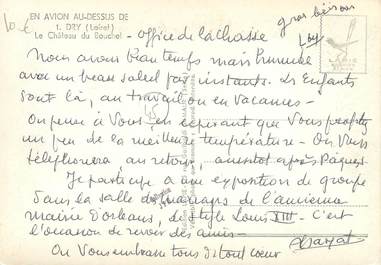 10 €
EN AVION AU-DESSUS DE
1. DRY (Loiret)
Le Château du Bouchet
gros bisous
- office de la chasse
Nous avons beau temps mais brumeux
avec un beau soleil par instants. Les Enfants
sont là, au travail ou en vacances -
On pense à Vous en espérant que Vous profitez
un peu de la meilleure température - On Vous
téléphonera au retour, aussitôt après Pâques.
Je participe à une exposition de groupe
dans la salle des mariages de l'ancienne
mairie d'Orléans, de style Louis XIII - C'est
l'occasion de revoir des amis -
On Vous embrasse tous de tout coeur